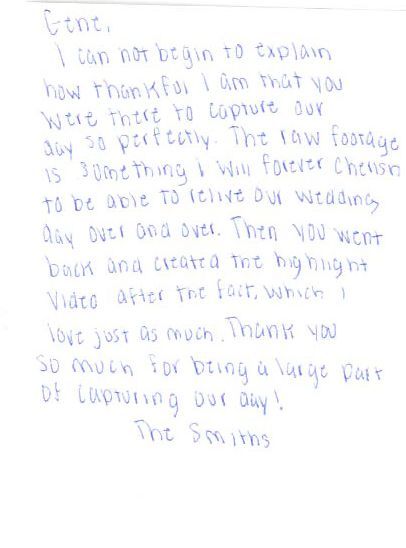 Gene,
I can not begin to explain
how thankful I am that you
were there to capture our
day so perfectly. The raw footage
is something I will forever cherish
to be able to relive our wedding
day over and over. Then you went
back and created the highlight
video after the fact, which I
love just as much. Thank you
so much for being a large part
of capturing our day!
The Smiths